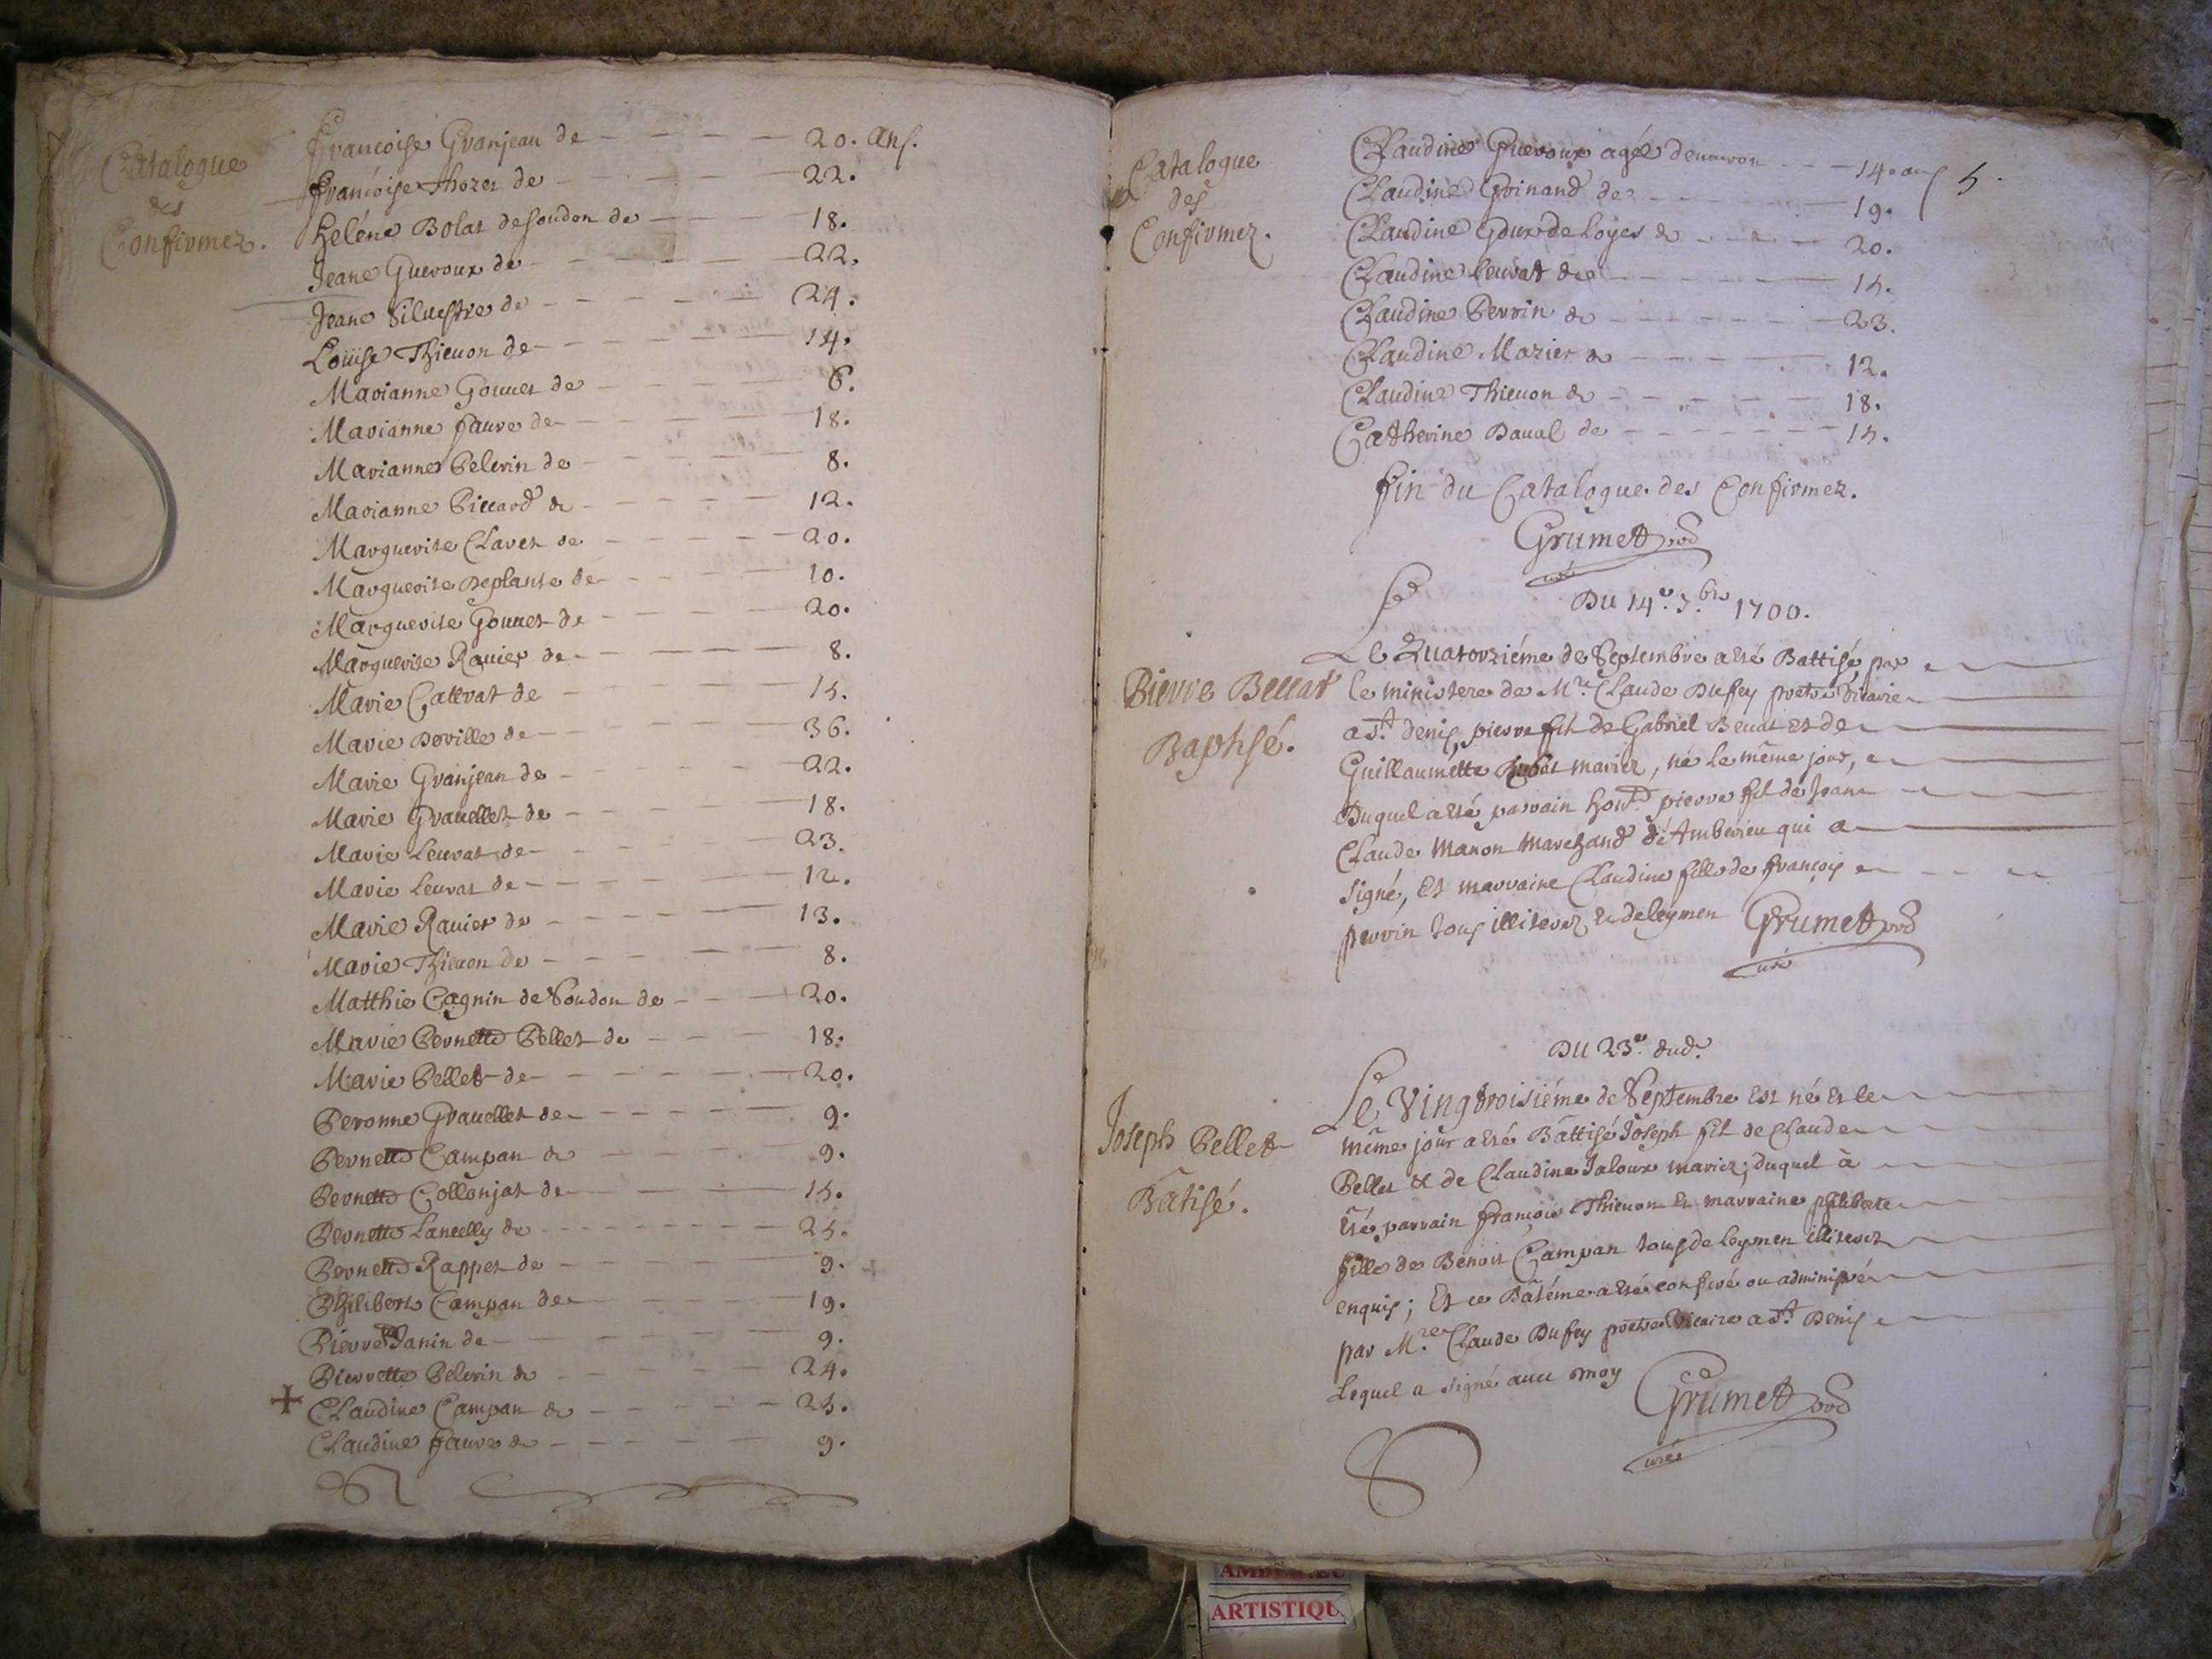 Catalogue
des
Confirmez.
Francoise Granjean de 20. ans.
francoise Thozet de 22.
heléne Bolat de Soudon de 18.
Jeane Gueroux de 22.
Jeane Siluestre de 24.
Loüise Thieuon de 14.
Marianne Gonnet de 6.
Marianne faure de 18.
Marianne Pelerin de 8.
Marianne Piccard de 12.
Marguerite Claret de 20.
Marguerite Deplante de 10.
Marguerite Gonnet de 20.
Marguerite Rauier de 8.
Marie Cattrat de 15.
Marie Doville de 36.
Marie Granjean de 22.
Marie Grauellet de 18.
Marie Leurat de 23.
Marie Leurat de 12.
Marie Rauier de 13.
Marie Thieuon de 8.
Matthie Cagnin de Soudon de 20.
Marie Pernette Pellet de 18.
Marie Pellet de 20.
Peronne Grauellet de 9.
Pernette Campan de 9.
Pernette Collonjat de 15.
Pernette Lancelly de 25.
Pernette Rappet de 9.
Philiberte Campan de 19.
Pierre Janin de 9.
Pierrette Pelerin de 24.
+ Claudine Campan de 25.
Claudine faure de 9.
Catalogue
des
Confirmez.
5.
Claudine Gueroux agée denuiron 14. ans
Claudine Goinand de 19.
Claudine Goux de Loyes de 20.
Claudine Leurat de 15.
Claudine Perrin de 23.
Claudine Mazier de 12.
Claudine Thieuon de 18.
Catherine Daual de 15.
fin du Catalogue des Confirmez.
Grumet
curé
Du 14e. 7.bre 1700.
Pierre Beccat
Baptisé.
Le Quatorziéme de Septembre a été Battisé par
le ministere de Mre. Claude Dufey pretre Vicaire
a St. denis, pierre fil de Gabriel Beccat et de
Guillaumette mariez, né le même jour,
Duquel a été parrain hon. pierre fil de Jean
Claude Manon marchand d'Amberieu qui a
signé, Et marraine Claudine fille de françois
perrin tous illiterez et de leymen Grumet
curé
Du 23e. dud.
Joseph Pellet
Bâtisé.
Le Vingtroisiéme de Septembre est né et le
même jour a été Battisé Joseph fil de Claude
Pellet et de Claudine Jaloux mariez; duquel à
été parrain françois Thieuon et marraine philiberte
fille de Benoit Campan tous de leymen illiterez
enquis; Et ce Batéme a été conferé ou administré
par Mre. Claude Dufey pretre Vicaire a St. Denis
Lequel a signé auec moy Grumet
curé
ARTISTIQU